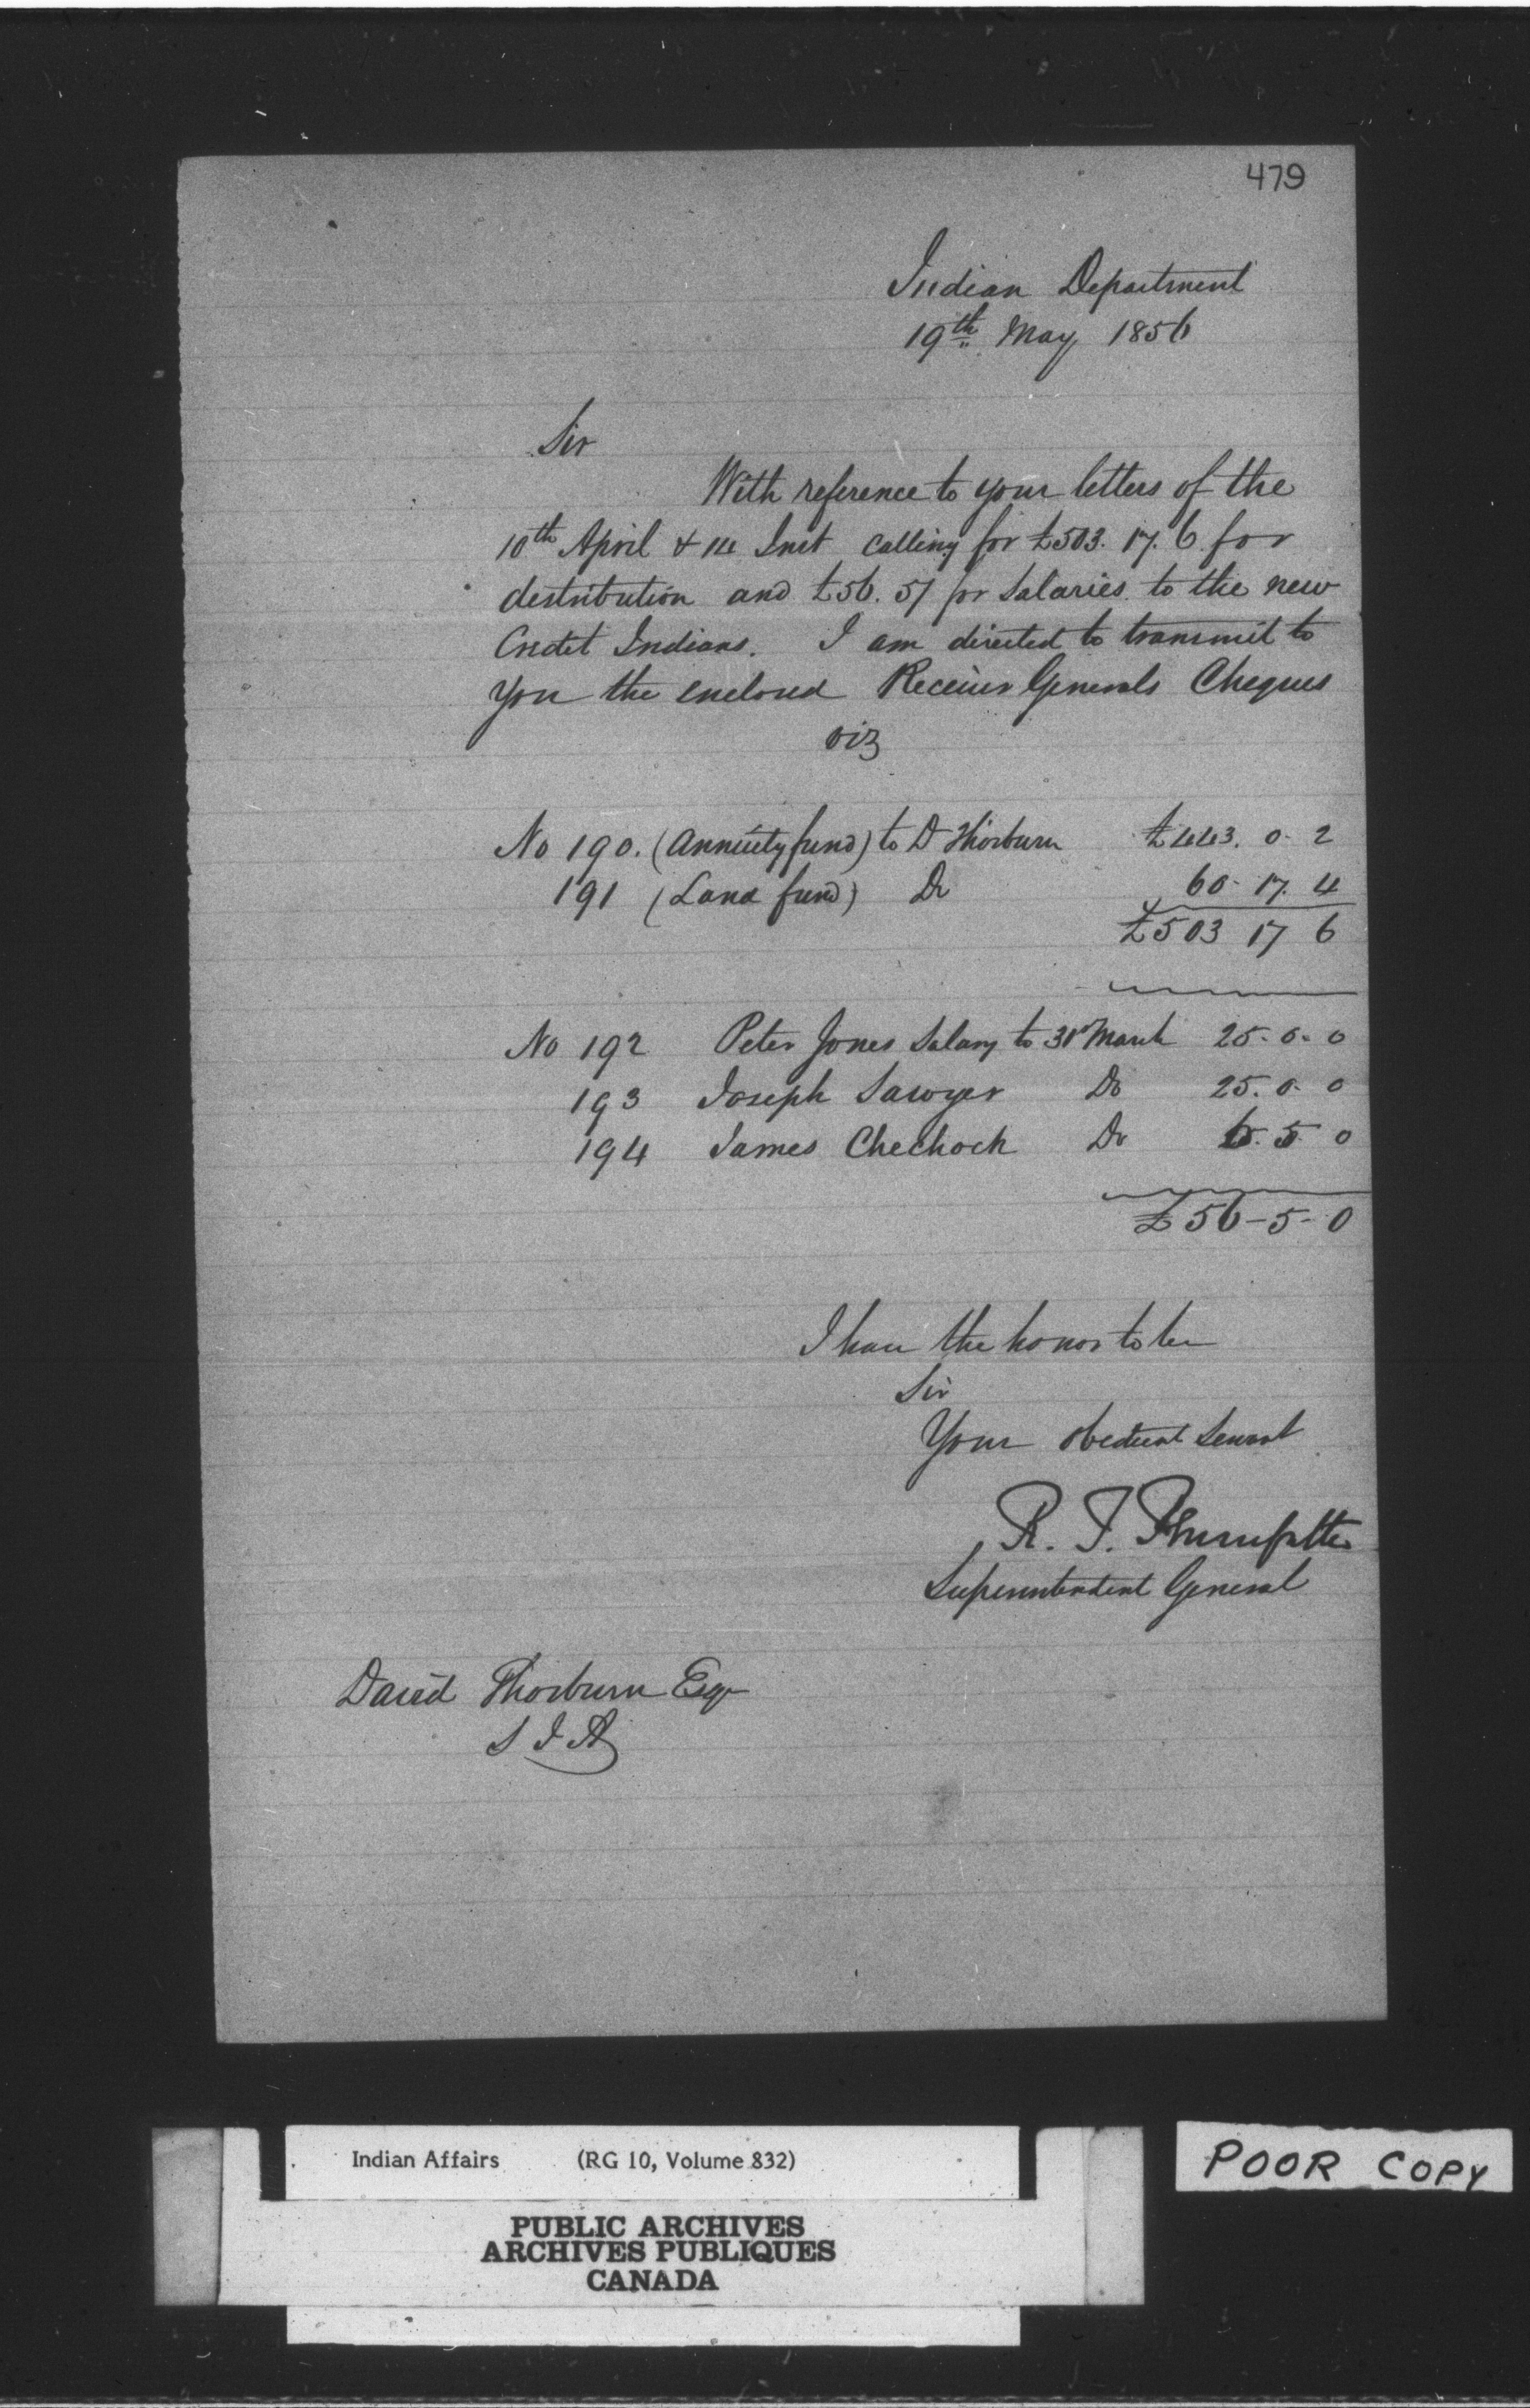 479
Indian Department
19th May 1856
Sir
With reference to your letters of the
10th April & 14 Inst calling for £503. 17. 6 for
distribution and £56. 5/ for Salaries to the new
Credit Indians. I am directed to transmit to
you the enclosed Receiver Generals Cheques
viz
No 190. (Annuity fund) to D Thorburn £443. 0. 2
191 (Land fund) Do 60. 17. 4
£503 17 6
No 192 Peter Jones Salary to 31st March 25. 0. 0
193 Joseph Sawyer Do 25. 0. 0
194 James Chechock Do 6. 5. 0
£56-5-0
I have the honor to be
Sir
Your obedient Servant
R. T. Pennefather
Superintendent General
David Thorburn Esqr
S I A
Indian Affairs (RG 10, Volume 832)
POOR COPY
PUBLIC ARCHIVES
ARCHIVES PUBLIQUES
CANADA